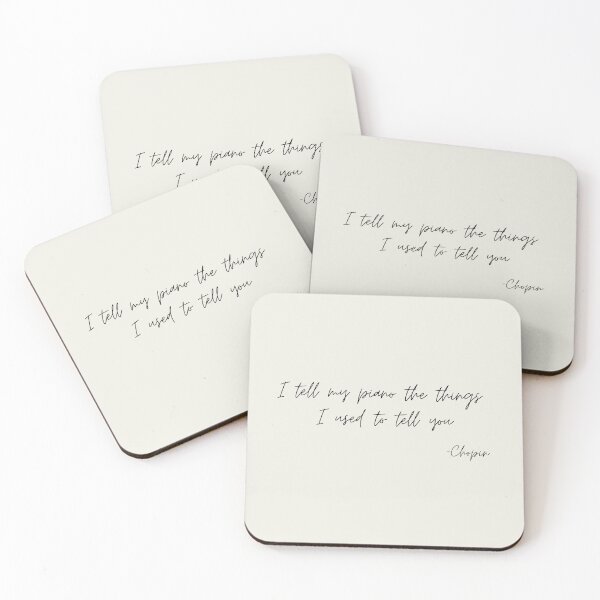 I tell my piano the things
I tell you
-Ch
I tell my piano the things
I used to tell you
-Chopin
I tell my piano the things
I used to tell you
I tell my piano the things
I used to tell you
-Chopin